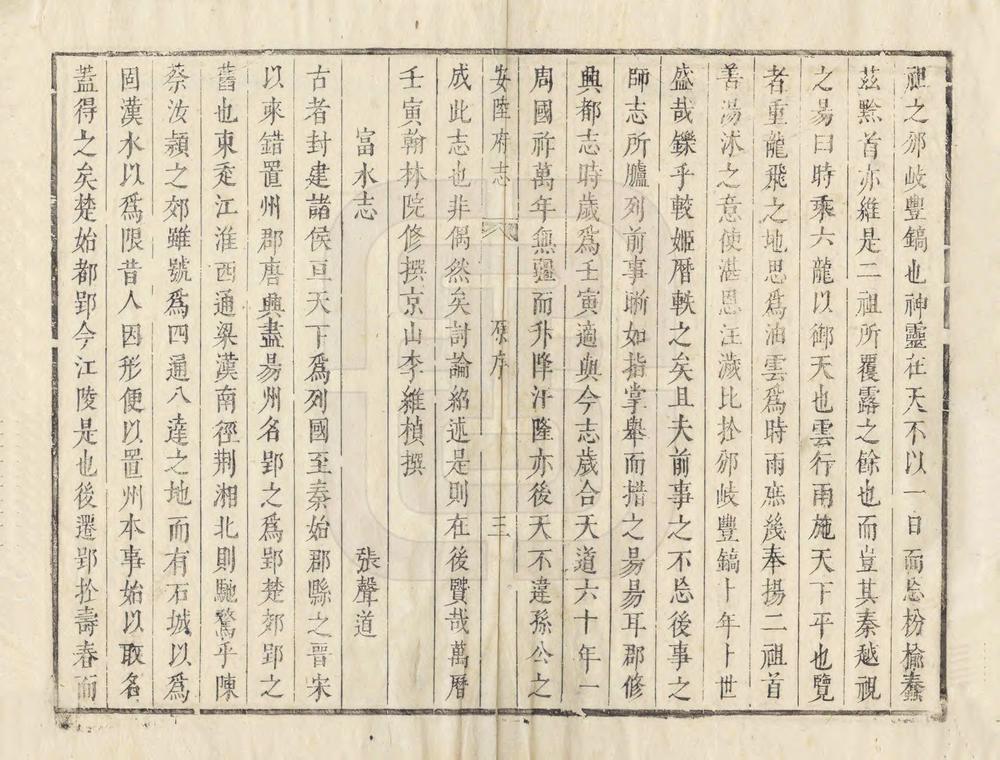 祖之邠岐豐鎬也神靈在天不以一日而忘枌榆蠢
茲黔首亦維是二祖所覆露之餘也而豈其秦越視
之昜曰時乘六龍以御天也雲行雨施天下平也覽
者重龍飛之地思爲油雲爲時雨庶幾奉揚二祖首
善湯沐之意使湛恩汪濊比於邠岐豐鎬卜年卜世
盛哉鑠乎較姬曆軼之矣且夫前事之不忘後事之
師志所臚列前事晣如指掌舉而措之昜昜耳郡修
興都志時歲爲壬寅適與今志歲合天道六十年一
周國祚萬年無疆而升降汙隆亦後天不違孫公之
安陸府志 原序 三
成此志也非偶然矣討論紹述是則在後賢哉萬曆
壬寅翰林院修撰京山李維楨撰
富水志 張聲道
古者封建諸侯亘天下爲列國至秦始郡縣之晋宋
以來錯置州郡唐興盡昜州名郢之爲郢楚郊郢之
舊也東走江淮西通梁漢南徑荆湘北則馳騖乎陳
蔡汝潁之郊雖號爲四通八達之地而有石城以爲
固漢水以爲限昔人因形便以置州本事始以取名
蓋得之矣楚始都郢今江陵是也後遷郢於壽春而